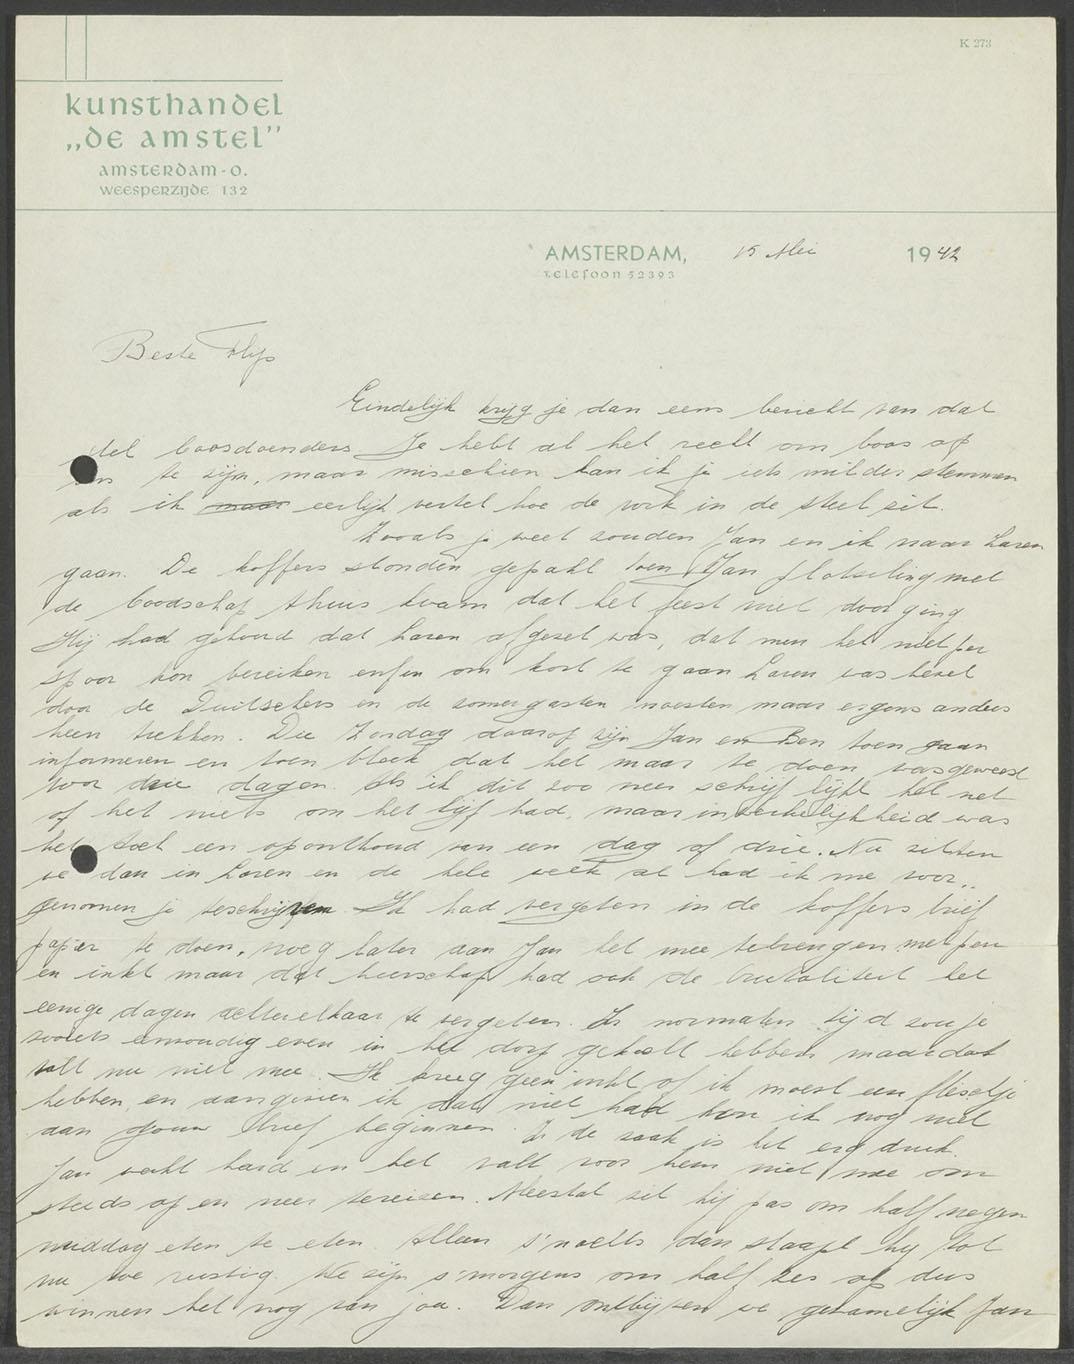 K 273
kunsthandel
„de amstel”
amsterdam-o.
weesperzijde 132
AMSTERDAM, 15 Mei 1942
telefoon 52393
Beste Flip
Eindelijk krijg je dan eens bericht van dat
stel boosdoenders Je hebt al het recht om boos op
ons te zijn, maar misschien kan ik je iets milder stemmen
als ik maar eerlijk vertel hoe de vork in de steel zit.
Zooals je weet zouden Jan en ik naar Laren
gaan. De koffers stonden gepakt toen Jan plotseling met
de boodschap thuis kwam dat het feest niet door ging
Hij had gehoord dat Laren afgezet was, dat men het niet per
spoor kon bereiken enfin om kort te gaan Laren was bezet
door de Duitschers en de zomergasten moesten maar ergens anders
heen trekken. Die Zondag daarop zijn Jan en Ben toen gaan
informeren en toen bleek dat het maar te doen was geweest
voor drie dagen. Als ik dit zoo neer schrijf lijkt het net
of het niets om het lijf had, maar in werkelijkheid was
het toch een oponthoud van een dag of drie. Nu zitten
we dan in Laren en de hele week al had ik me voor
genomen je te schrijven. Ik had vergeten in de koffers brief
papier te doen, vroeg later aan Jan het mee te brengen met pen
en inkt maar dat heerschap had ook de brutaliteit het
eenige dagen achterelkaar te vergeten. In normalen tijd zou je
zooiets eenvoudig even in het dorp gehaald hebben maar dat
valt nu niet mee. Ik kreeg geen inkt of ik moest een flesetje
hebben, en aangezien ik dat niet had kon ik nog niet
aan jouw brief beginnen. In de zaak is het erg druk.
Jan werkt hard en het valt voor hem niet mee om
steeds op en neer te reizen. Meestal zit hij pas om half negen
middag eten te eten. Alleen s'nachts dan slaapt hij tot
nu toe rustig. We zijn s'morgens om half zes op dus
winnen het nog van jou. Dan ontbijten we gezamelijk Jan